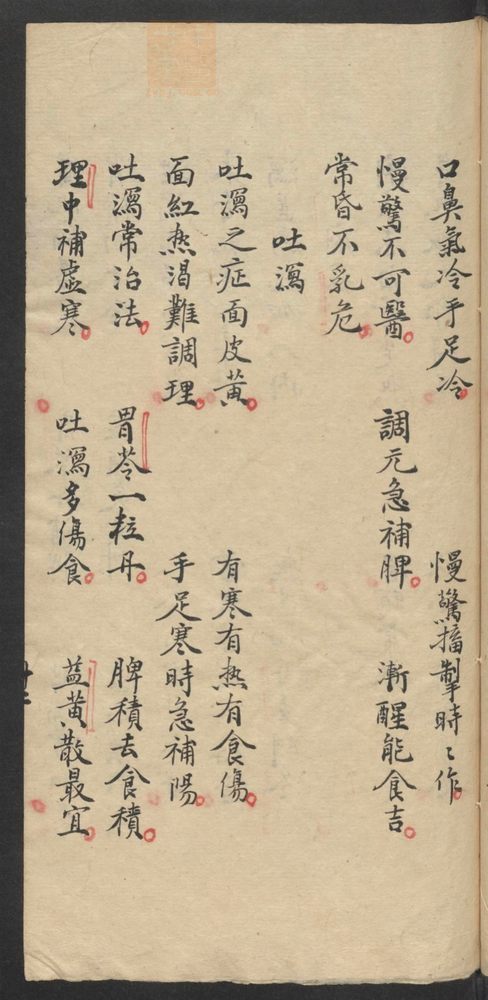 口鼻氣冷手足冷　慢驚搐掣時〻作
慢驚不可醫　調元急補脾　漸醒能食吉
常昏不乳危
吐瀉
吐瀉之症面皮黃　有寒有热有食傷
面紅热渴難調理　手足寒時急補陽
吐瀉常治法　胃苓一粒丹　脾積去食積
理中補虛寒　吐瀉多傷食　益黃散最宜
十二